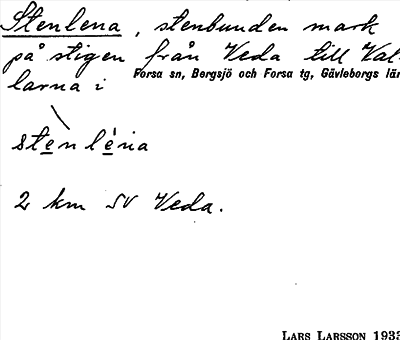 Stenlena, stenbunden mark
på stigen från Veda till Val-
larna i Forsa sn, Bergsjö och Forsa tg, Gävleborgs län
stenlena
2 km SV Veda.
LARS LARSSON 1933